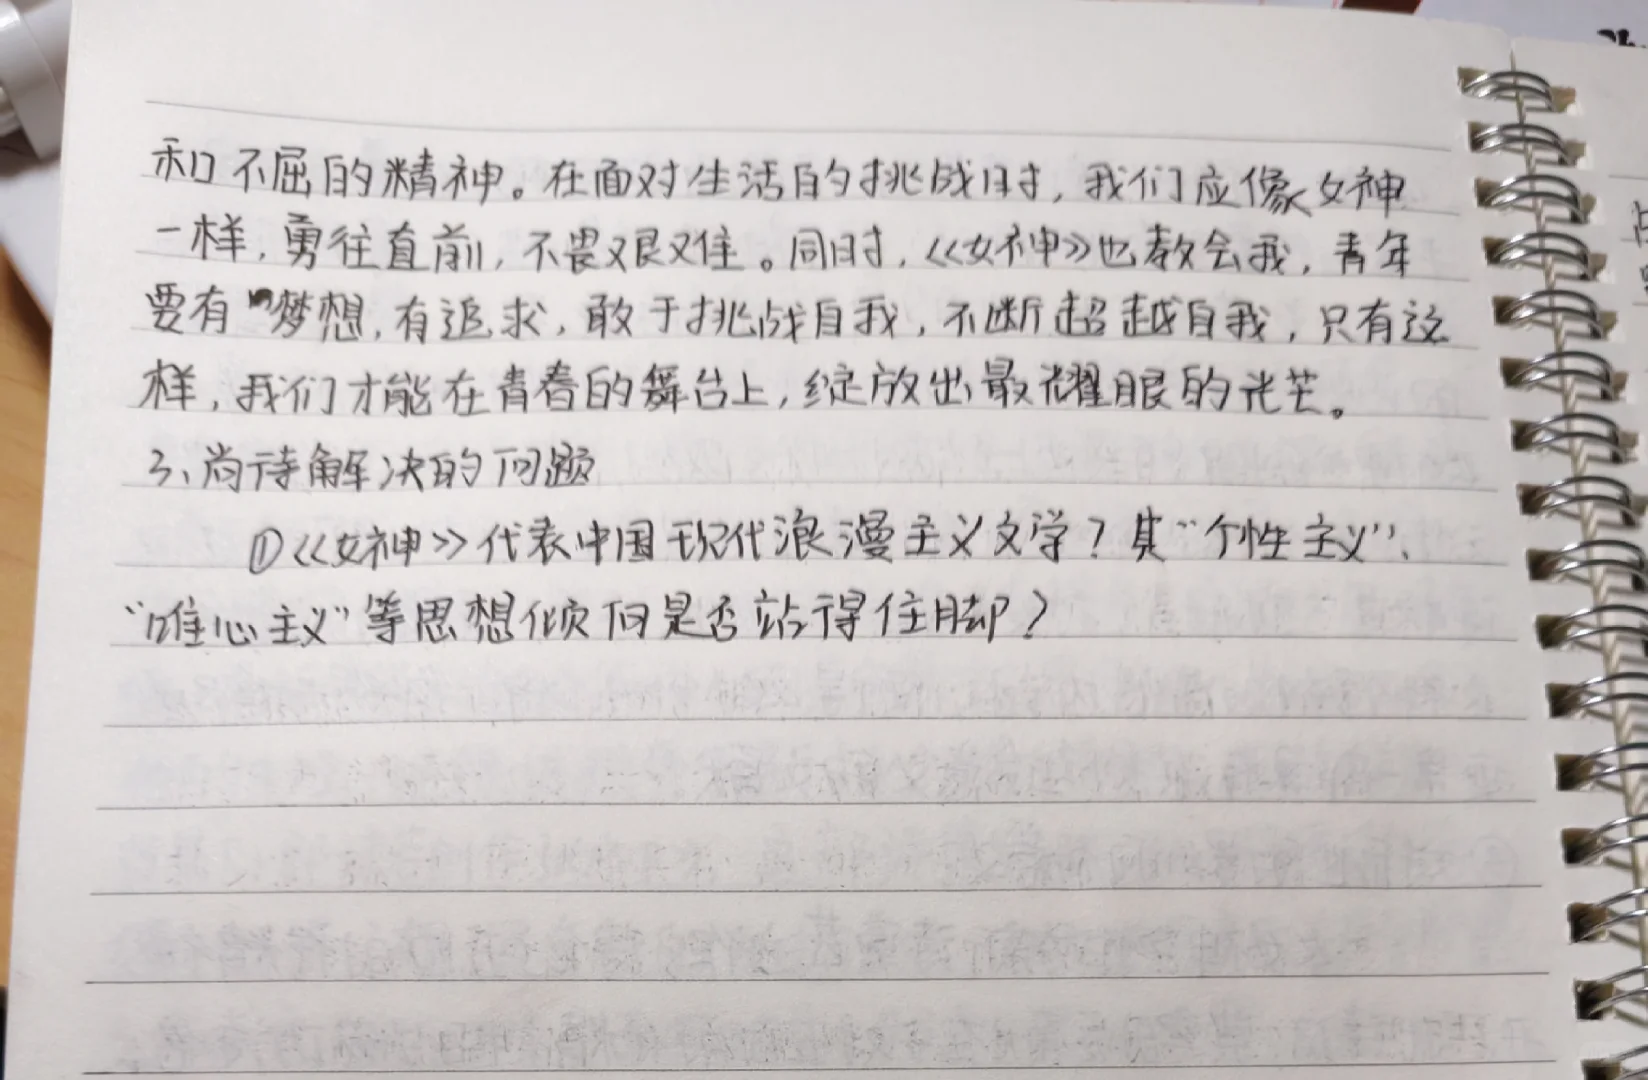 和不屈的精神。在面对生活的挑战时,我们应像女神
一样,勇往直前,不畏艰难。同时,《女神》也教会我,青年
要有梦想,有追求,敢于挑战自我,不断超越自我,只有这
样,我们才能在青春的舞台上,绽放出最耀眼的光芒。
3、尚待解决的问题
①《女神》代表中国现代浪漫主义文学?其“个性主义”、
“唯心主义”等思想倾向是否站得住脚?